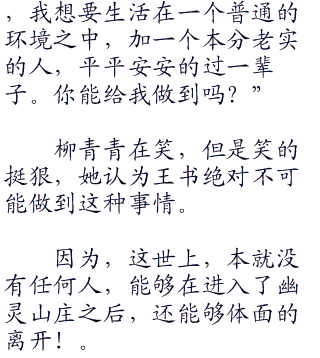 ，我想要生活在一个普通的
环境之中，加一个本分老实
的人，平平安安的过一辈
子。你能给我做到吗？”
柳青青在笑，但是笑的
挺狠，她认为王书绝对不可
能做到这种事情。
因为，这世上，本就没
有任何人，能够在进入了幽
灵山庄之后，还能够体面的
离开！。